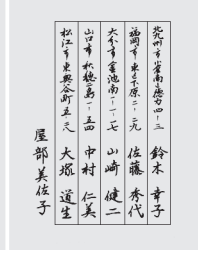 北九州市小倉南区徳力四-三 鈴木 幸子
福岡市東区下原二-二九 佐藤 秀代
大分市金池南一-一七 山崎 健二
山口市秋穂二島一-五四 中村 仁美
松江市東奥谷町五二八 大塚 道生
屋部美佐子